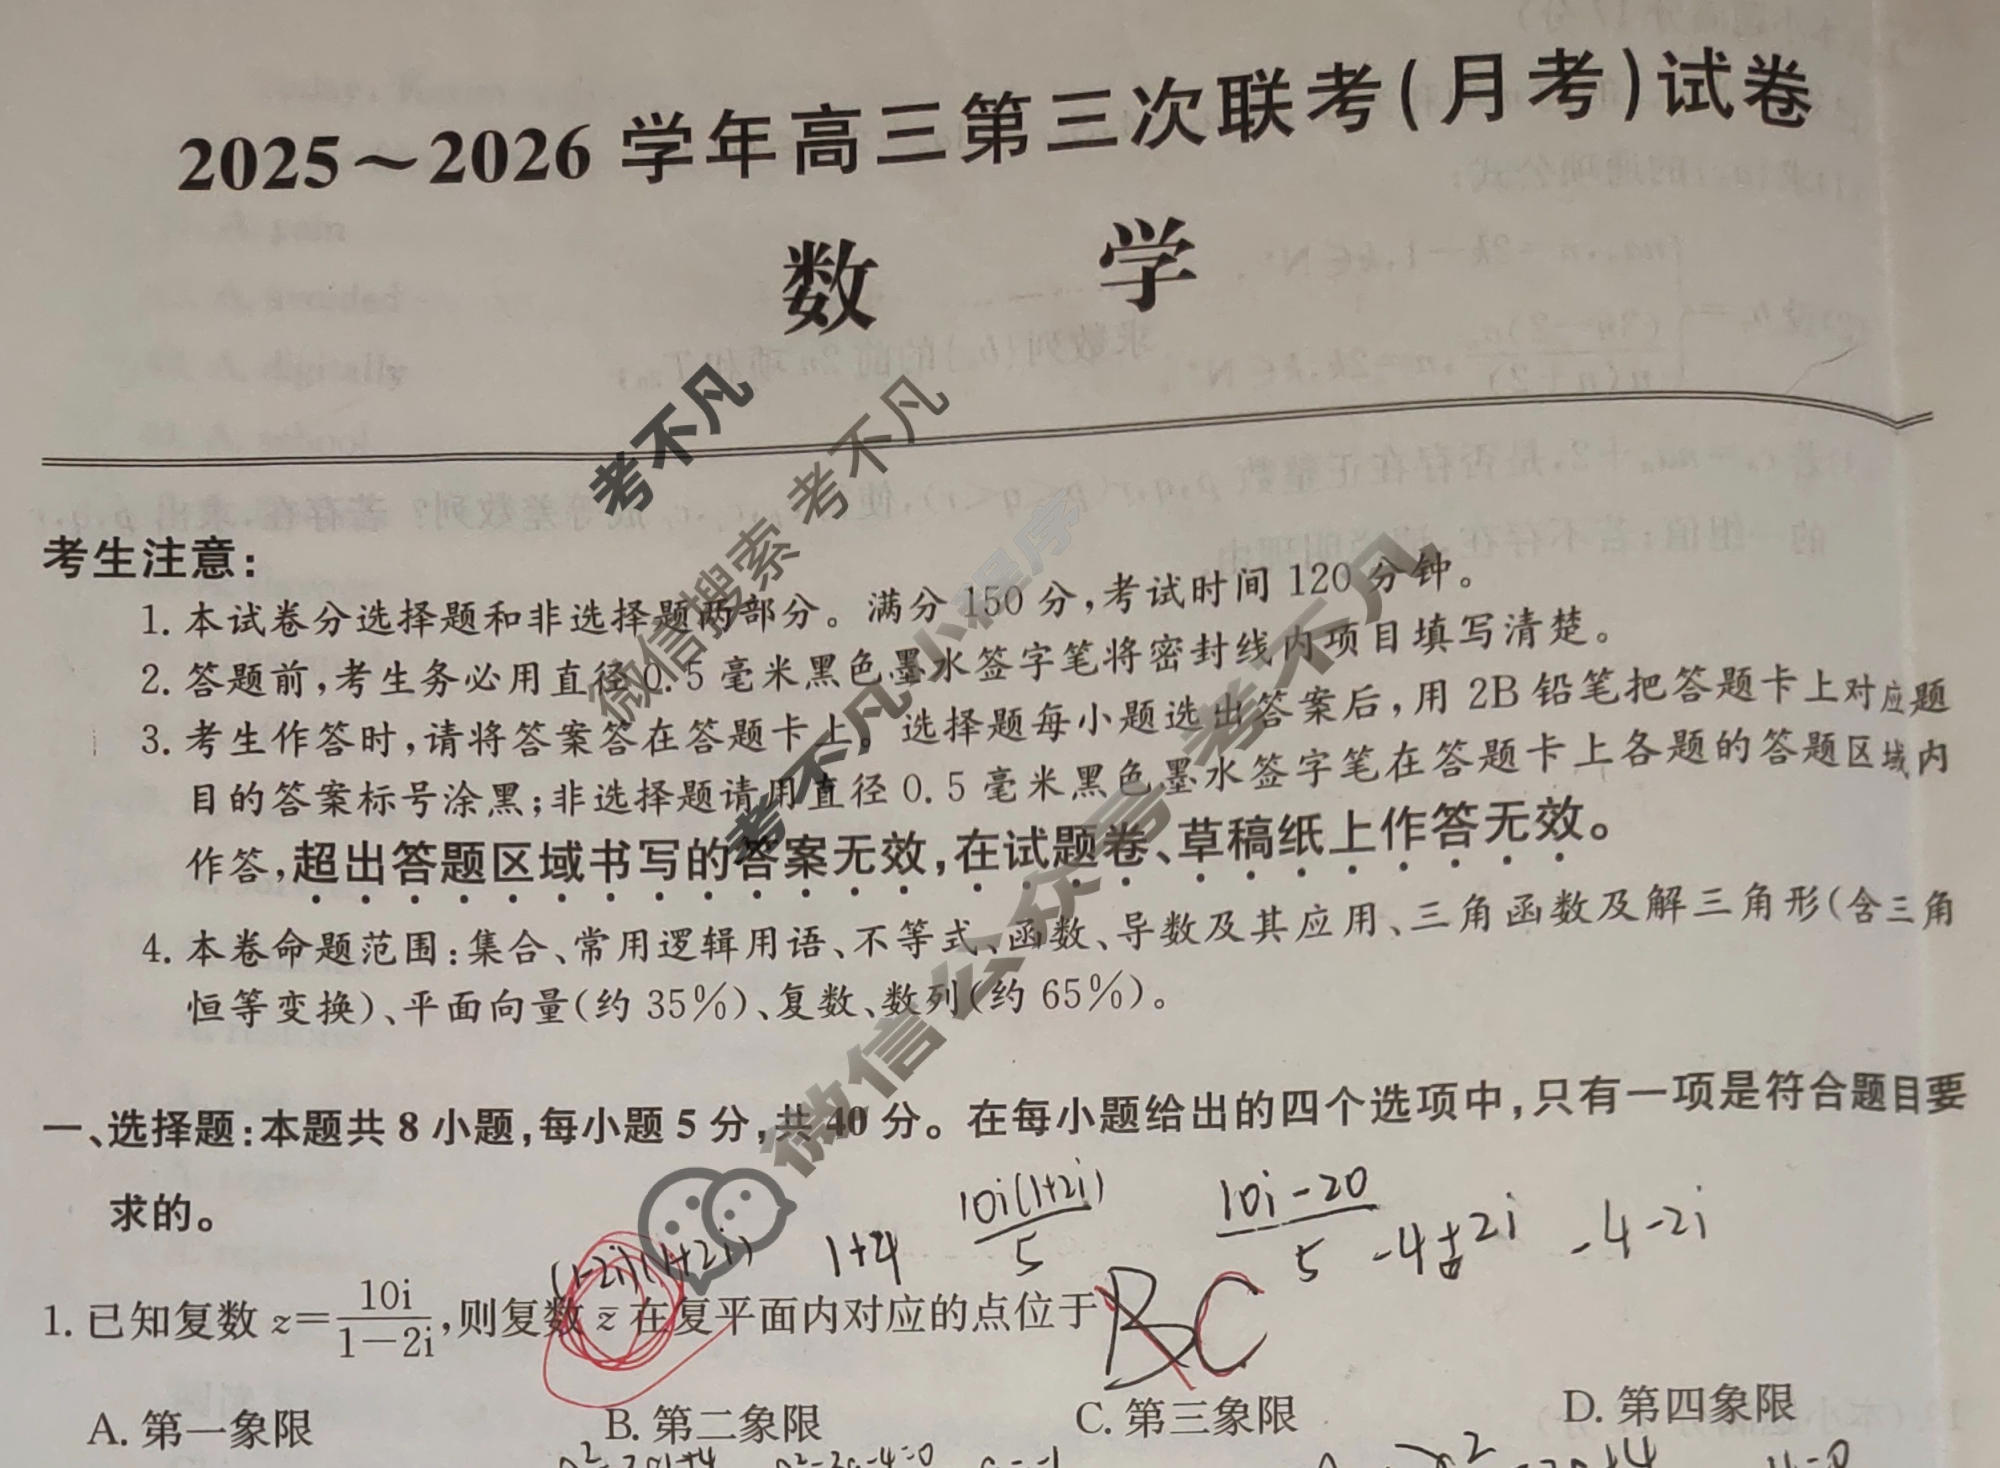 2025～2026 学年高三第三次联考(月考)试卷
数 学
考生注意:
1. 本试卷分选择题和非选择题两部分。满分 150 分,考试时间 120 分钟。
2. 答题前,考生务必用直径 0.5 毫米黑色墨水签字笔将密封线内项目填写清楚。
3. 考生作答时,请将答案答在答题卡上。选择题每小题选出答案后,用 2B 铅笔把答题卡上对应题
目的答案标号涂黑;非选择题请用直径 0.5 毫米黑色墨水签字笔在答题卡上各题的答题区域内
作答,超出答题区域书写的答案无效,在试题卷、草稿纸上作答无效。
4. 本卷命题范围:集合、常用逻辑用语、不等式、函数、导数及其应用、三角函数及解三角形(含三角
恒等变换)、平面向量(约 35%)、复数、数列(约 65%)。
一、选择题:本题共 8 小题,每小题 5 分,共 40 分。在每小题给出的四个选项中,只有一项是符合题目要
求的。
(1-2i)(1+2i) 1+4 10i(1+2i)/5 10i-20/5 -4+2i -4-2i
1. 已知复数 z=10i/1-2i,则复数 z̄ 在复平面内对应的点位于 B C
A. 第一象限 B. 第二象限 C. 第三象限 D. 第四象限
考不凡
微信搜索 考不凡
考不凡小程序
微信公众号 考不凡